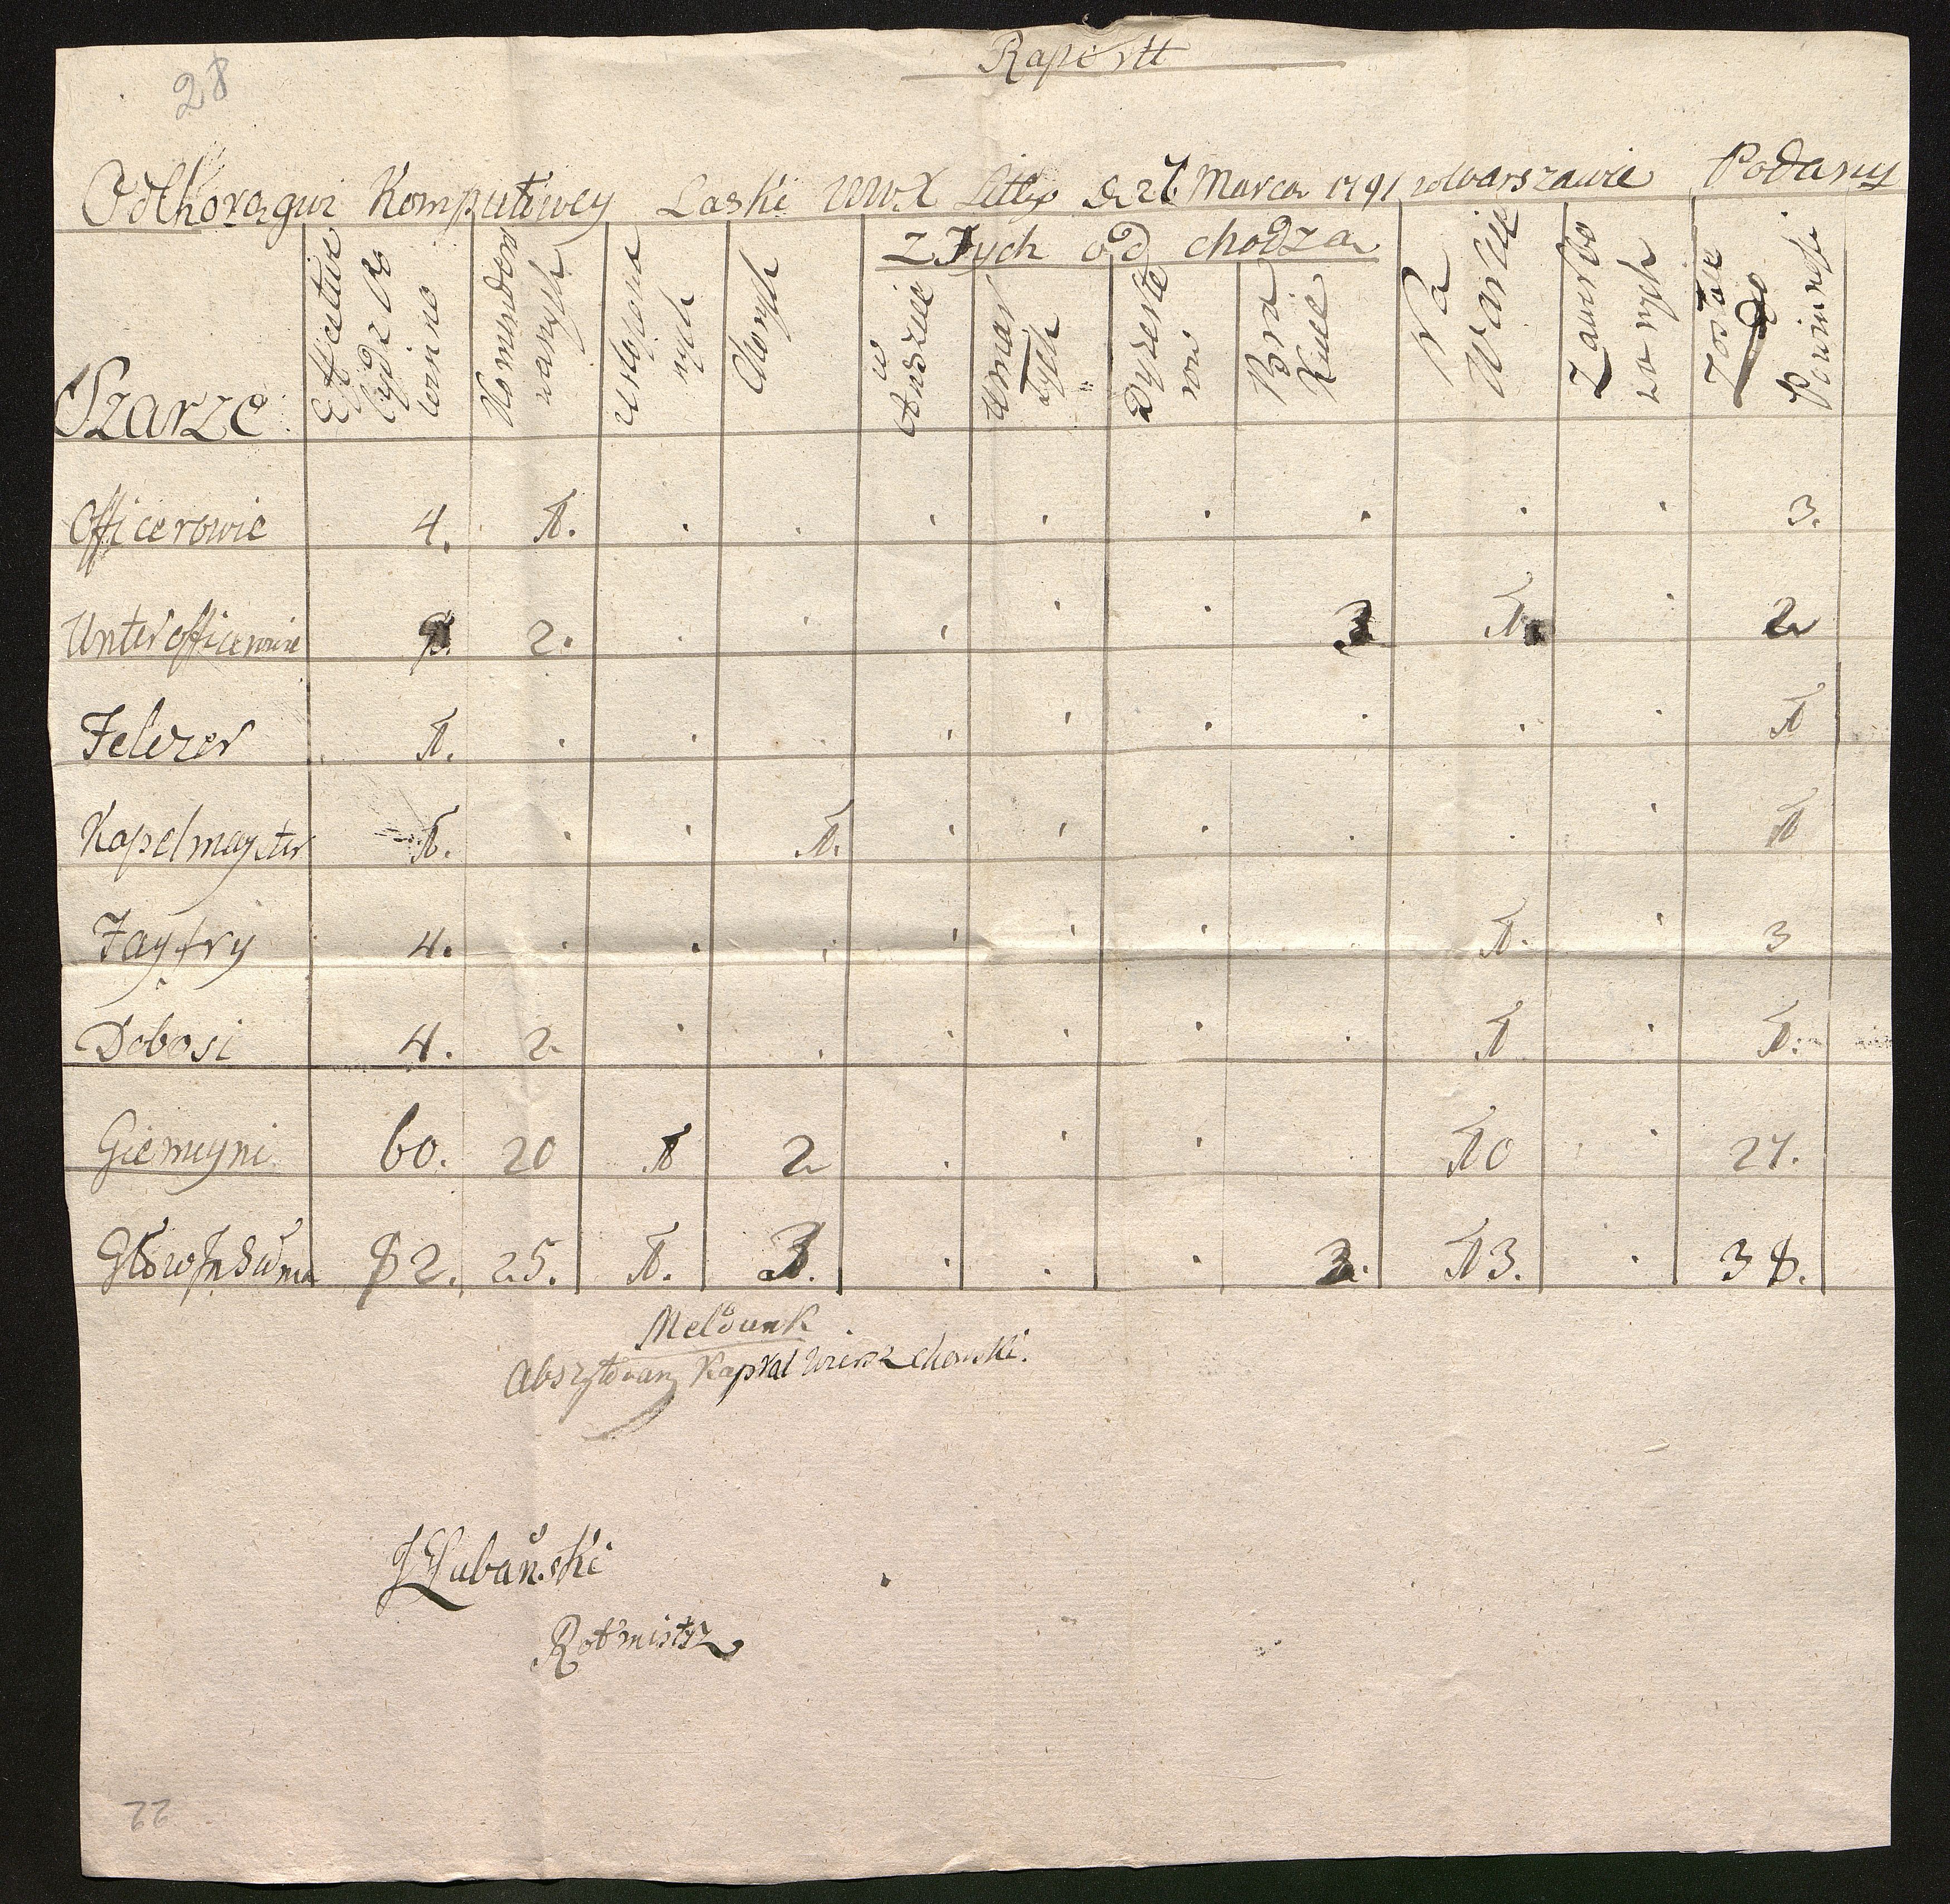 28
Raportt
Od Chorągwi Komputowey Laski WWX Litto D. 26 Marca 1791 w Warszawie Podany
Szarze
Effective bydz Po winno
Komendero wanych
Urlopowa nych
Chorych
Z Tych od chodza
w Areszcie
Umar łych
Dyzerte row
Bra kuie
Na Warcie
Zawerbo wanych
Zostaie do Powinnosci
Officerowie 4. 1. . . . . . . . . 3.
Unterofficerowie 8. 2. . . . . . 3 1. . 2
Felczer 1. . . . . . . . . . 1
Kapelmayster 1. . . 1. . . . . . . 1
Fayfry 4. . . . . . . 1. . 3
Dobosi 4. 2 . . . . . . 1 . 1.
Giemeyni 60. 20 1 2 . . . . 10 . 27.
Głowna Suma 82. 25. 1. 3. . . . 3. 13. . 38.
Meldunk
Abszytowany Kapral Wierzchowski.
J Łubański
Rotmistrz
22